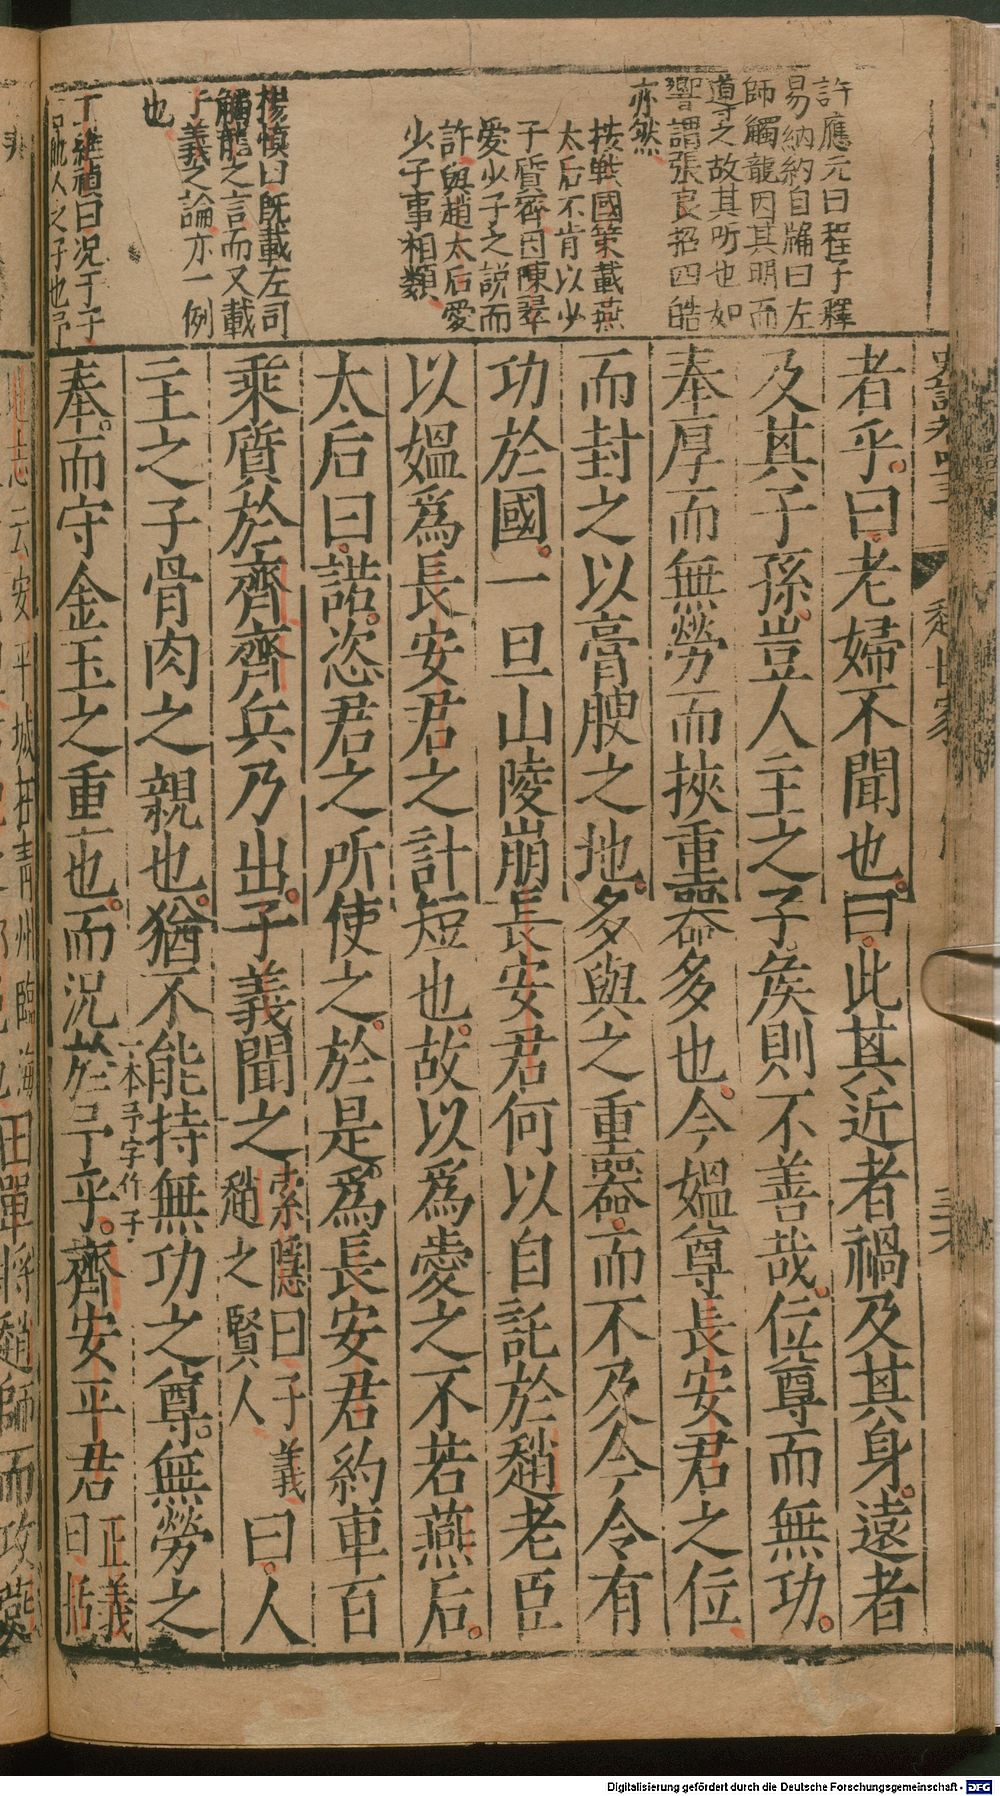 許應元曰程子釋
易納約自牖曰左
師觸龍因其明而
導之故其聽也如
響謂張良招四皓
亦然
按戰國策載燕
太后不肯以少
子質齊因陳翠
愛少子之說而
許與趙太后愛
少子事相類
楊慎曰既載左司
觸龍之言而又載
子義之論亦一例
也
丁維禎曰况于子
者乎曰老婦不聞也曰此其近者禍及其身遠者
及其子孫豈人主之子侯則不善哉位尊而無功
奉厚而無勞而挾重器多也今媼尊長安君之位
而封之以膏腴之地多與之重器而不及今令有
功於國一旦山陵崩長安君何以自託於趙老臣
以媼爲長安君之計短也故以爲愛之不若燕后
太后曰諾恣君之所使之於是爲長安君約車百
乘質於齊齊兵乃出子義聞之索隱曰子義趙之賢人曰人
主之子骨肉之親也猶不能持無功之尊無勞之
奉而守金玉之重也而况於予乎一本予字作子齊安平君正義曰括
地志云安平城在青州臨
田單將趙師而攻燕
趙世家
Digitalisierung gefördert durch die Deutsche Forschungsgemeinschaft - DFG